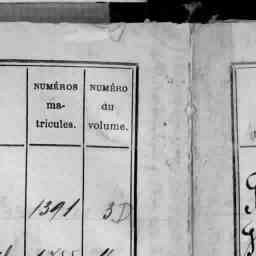 NUMÉROS
ma-
tricules.
NUMÉRO
du
volume.
1391 3D